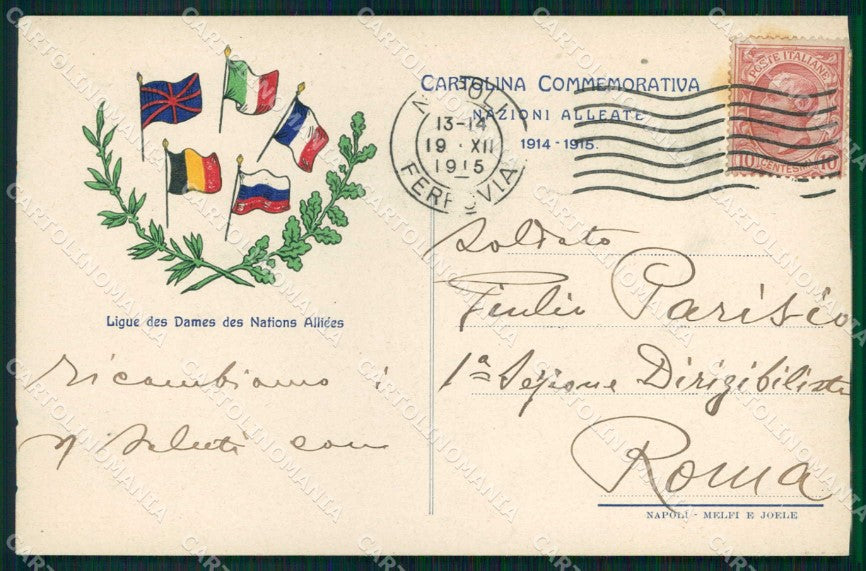 CARTOLINA COMMEMORATIVA
NAZIONI ALLEATE
1914-1915.
POSTE ITALIANE
10 CENTESIMI 10
NAPOLI
13-14
19 · XII
1915
FERROVIA
Ligue des Dames des Nations Alliées
Ricambiamo i
saluti con
Soldato
Giulio Parisio
1ª Sezione Dirigibilisti
Roma
NAPOLI - MELFI E JOELE
CARTOLINOMANIA